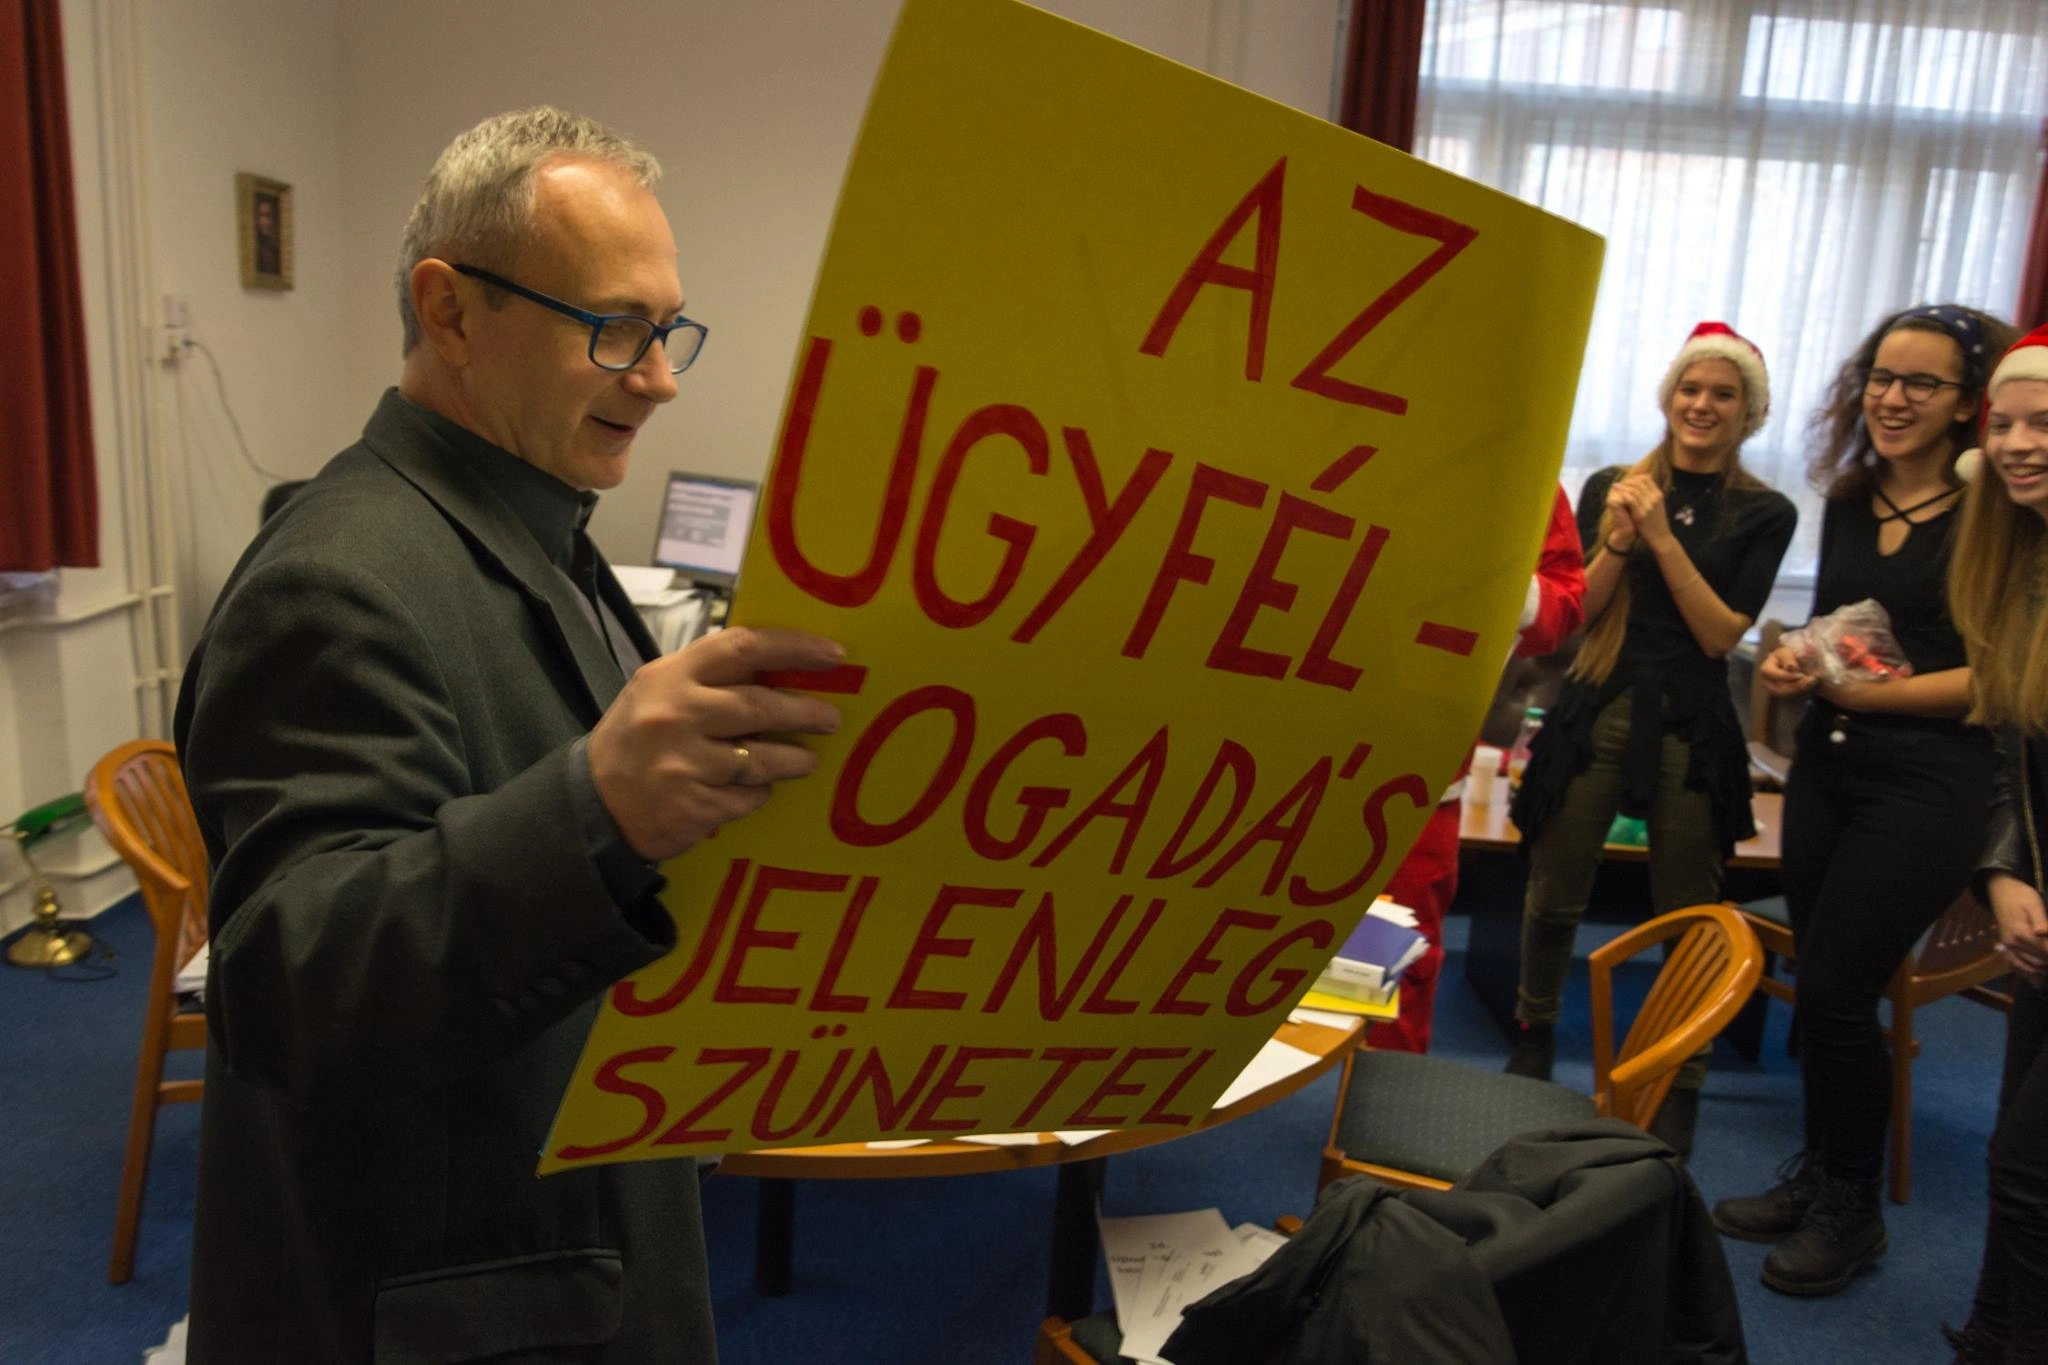 AZ
ÜGYFÉL-
FOGADÁS
JELENLEG
SZÜNETEL